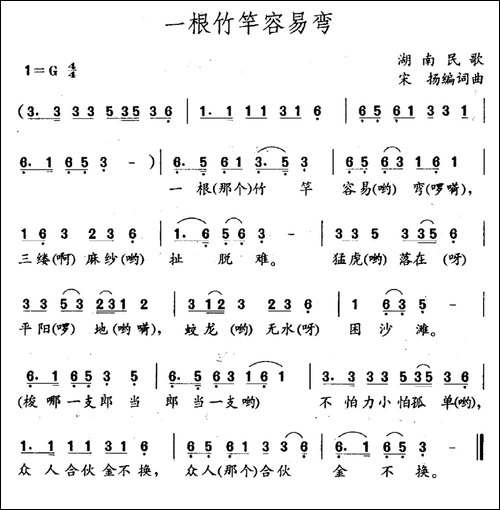 一根竹竿容易弯
1=G 4/4
湖南民歌
宋扬编词曲
(3. 3 3 3 5 3 5 3 6 | 1. 1 1 1 3 1 6 | 6 5 6 1 3 3 1 |
6. 1 6 5 3 - ) | 6. 5 6 1 3. 5 3 | 6 5 6 3 1 6 1 |
一根(那个)竹竿 容易(哟)弯(啰嗬),
1 6 3 2 3 6 | 1. 6 5 6 3 - | 3 5 3 3 5 3 3 |
三缕(啊)麻纱(哟) 扯脱难。 猛虎(哟)落在(呀
3 3 5 3 2 3 1 2 | 3 1 2 2 3 6 | 1 6 3 5 - |
平阳(啰)地(哟嗬), 蛟龙(哟)无水(呀 困沙滩。
6. 5 6 1 3 5 3 | 6. 5 6 3 1 6 1 | 3. 3 3 3 5 3 5 3 6 |
(梭哪一支郎当 郎当一支哟) 不怕力小怕孤单(哟),
1. 1 1 1 3 1 6 | 6 5 6 1 3 3 6 | 6. 1 6 5 3 - ‖
众人合伙金不换, 众人(那个)合伙 金不换。